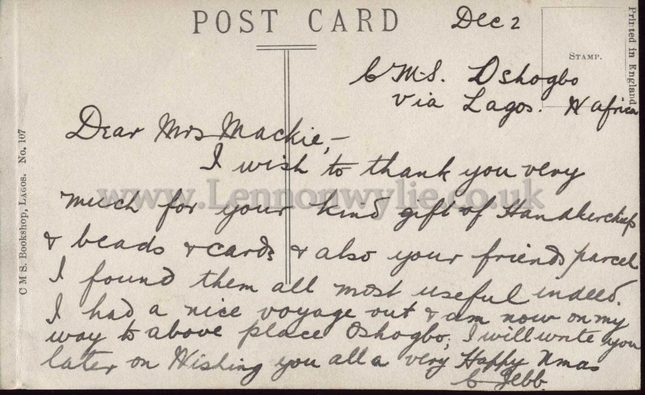 POST CARD
Dec 2
STAMP.
Printed in England
C.M.S. Oshogbo
via Lagos. W Africa
Dear Mrs Mackie,-
I wish to thank you very
www.Lennonwylie.co.uk
much for your kind gift of Handkerchiefs
& beads & cards & also your friends parcel
I found them all most useful indeed.
I had a nice voyage out & am now on my
way to above place Oshogbo, I will write you
later on Wishing you all a very Happy Xmas
C Jebb.
C M S. BOOKSHOP, LAGOS. No. 107